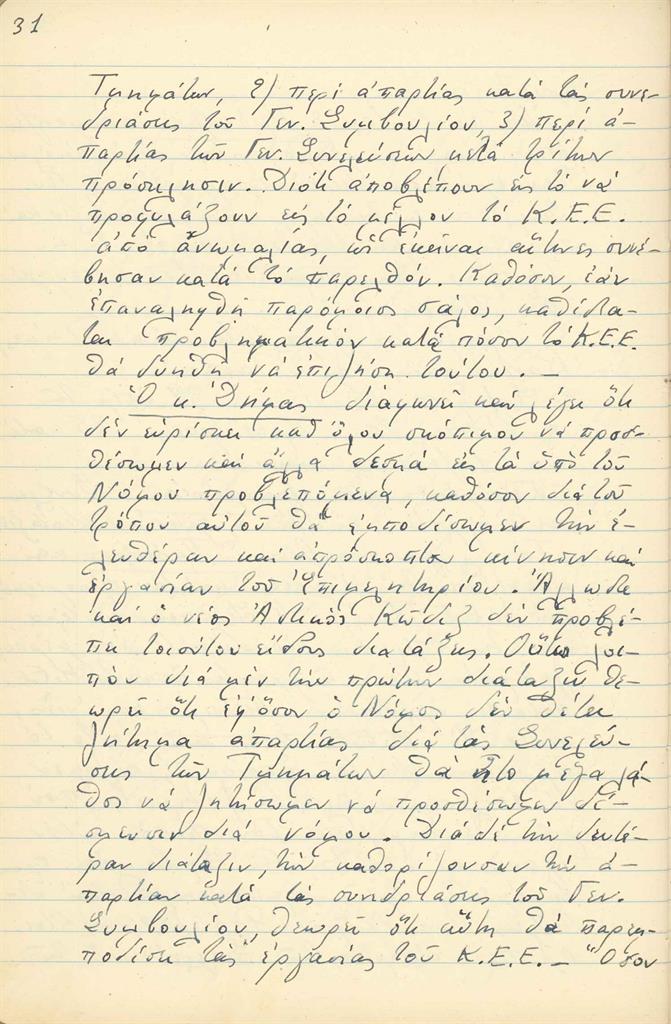 31
Τμημάτων, 2) περί ἀπαρτίας κατά τάς συνε-
δριάσεις τοῦ Γεν. Συμβουλίου, 3) περί ἀ-
παρτίας τῶν Γεν. Συνελεύσεων μετά τρίτην
πρόσκλησιν. Διότι ἀποβλέπουν εἰς τό νά
προφυλάξουν εἰς τό μέλλον τό Κ.Ε.Ε.
ἀπό ἀνωμαλίας, ὡς ἐκεῖναι αἵτινες συνέ-
βησαν κατά τό παρελθόν. Καθόσον, ἐάν
ἐπαναληφθῆ παρόμοιος σάλος, καθίστα-
ται προβληματικόν κατά πόσον τό Κ.Ε.Ε.
θά δυνηθῆ νά ἐπιζήση τούτου. —
Ὁ κ. Δήμας διαφωνεῖ καί λέγει ὅτι
δέν εὑρίσκει καθ' ὅλου σκόπιμον νά προσ-
θέσωμεν καί ἄλλα δεσμά εἰς τά ὑπό τοῦ
Νόμου προβλεπόμενα, καθόσον διά τοῦ
τρόπου αὐτοῦ θά ἐμποδίσωμεν τήν ἐ-
λευθέραν καί ἀπρόσκοπτον κίνησιν καί
ἐργασίαν τοῦ Ἐπιμελητηρίου. Ἄλλωστε
καί ὁ νέος Ἀστικός Κῶδιξ δέν προβλέ-
πει τοιούτου εἴδους διατάξεις. Οὕτω λοι-
πόν διά μέν τήν πρώτην διάταξιν θε-
ωρεῖ ὅτι ἐφ' ὅσον ὁ Νόμος δέν θέτει
ζήτημα ἀπαρτίας διά τάς Συνελεύ-
σεις τῶν Τμημάτων θά ἦτο μέγα λά-
θος νά ζητήσωμεν νά προσθέσωμεν δέ-
σμευσιν διά νόμου. Διά δέ τήν δευτέ-
ραν διάταξιν, τήν καθορίζουσαν τήν ἀ-
παρτίαν κατά τάς συνεδριάσεις τοῦ Γεν.
Συμβουλίου, θεωρεῖ ὅτι αὕτη θά παρεμ-
ποδίση τάς ἐργασίας τοῦ Κ.Ε.Ε. — Ὅσον